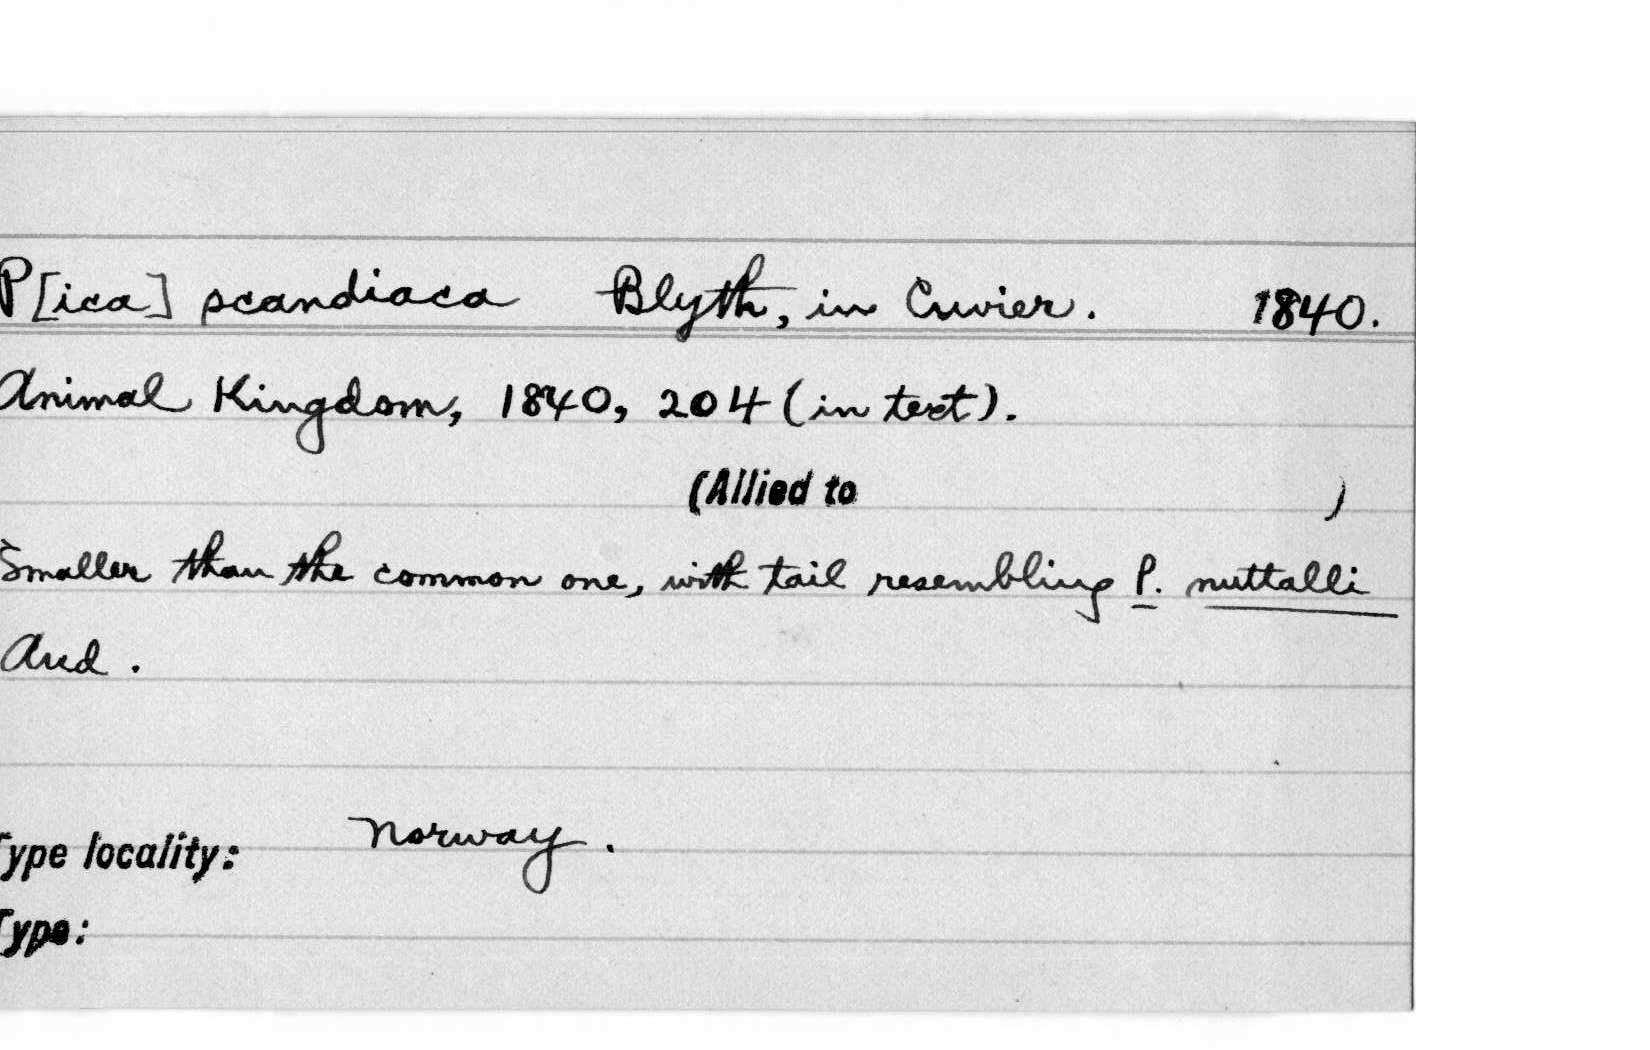 P[ica] scandiaca Blyth, in Cuvier. 1840.
Animal Kingdom, 1840, 204 (in text).
(Allied to )
Smaller than the common one, with tail resembling P. nuttalli
Aud.
Type locality: Norway.
Type: